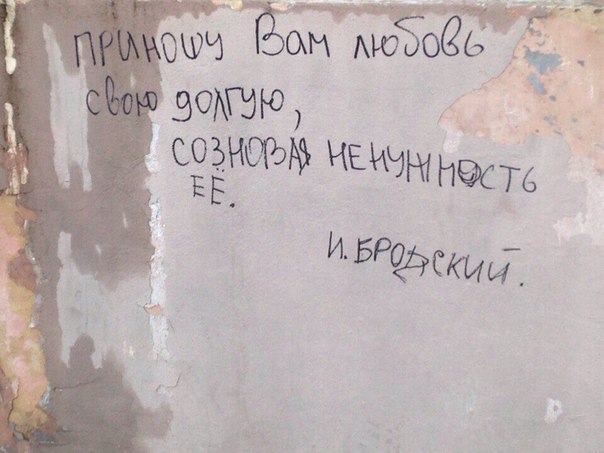 ПРИНОШУ Вам любовь
свою долгую,
СОЗНОВАЯ НЕНУЖНОСТЬ
ЕЁ.
И. БРОДСКИЙ.